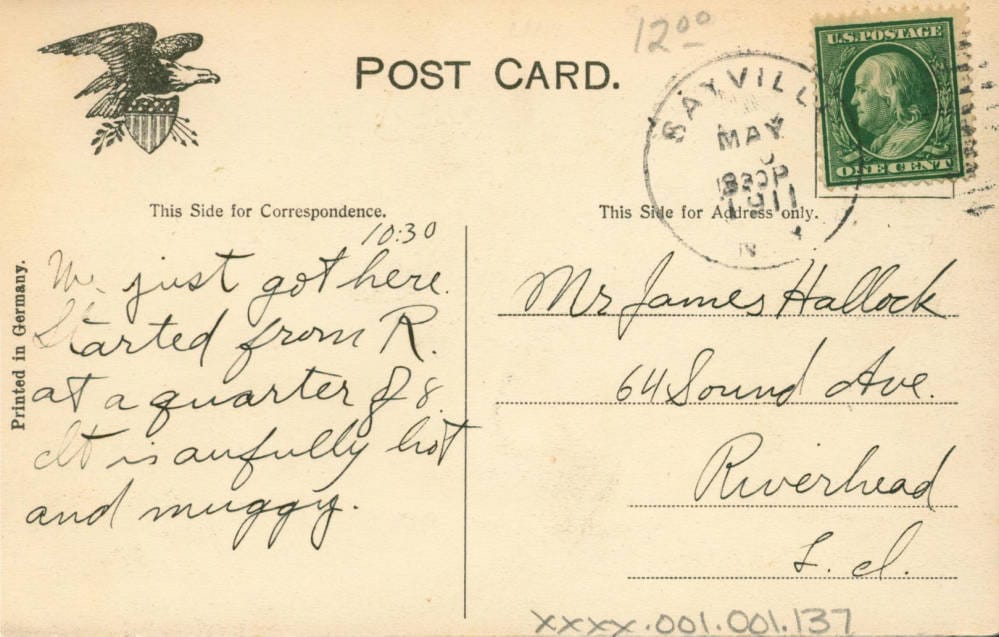 12⁰⁰
POST CARD.
U.S. POSTAGE
ONE CENT
SAYVILL
MAY
830P
1911
N Y
This Side for Correspondence.
This Side for Address only.
Printed in Germany.
10:30
We just got here.
Started from R.
at a quarter of 8.
It is aufully hot
and muggy.
Mr James Hallock
64 Sound Ave.
Riverhead
L. I.
xxxx.001.001.137